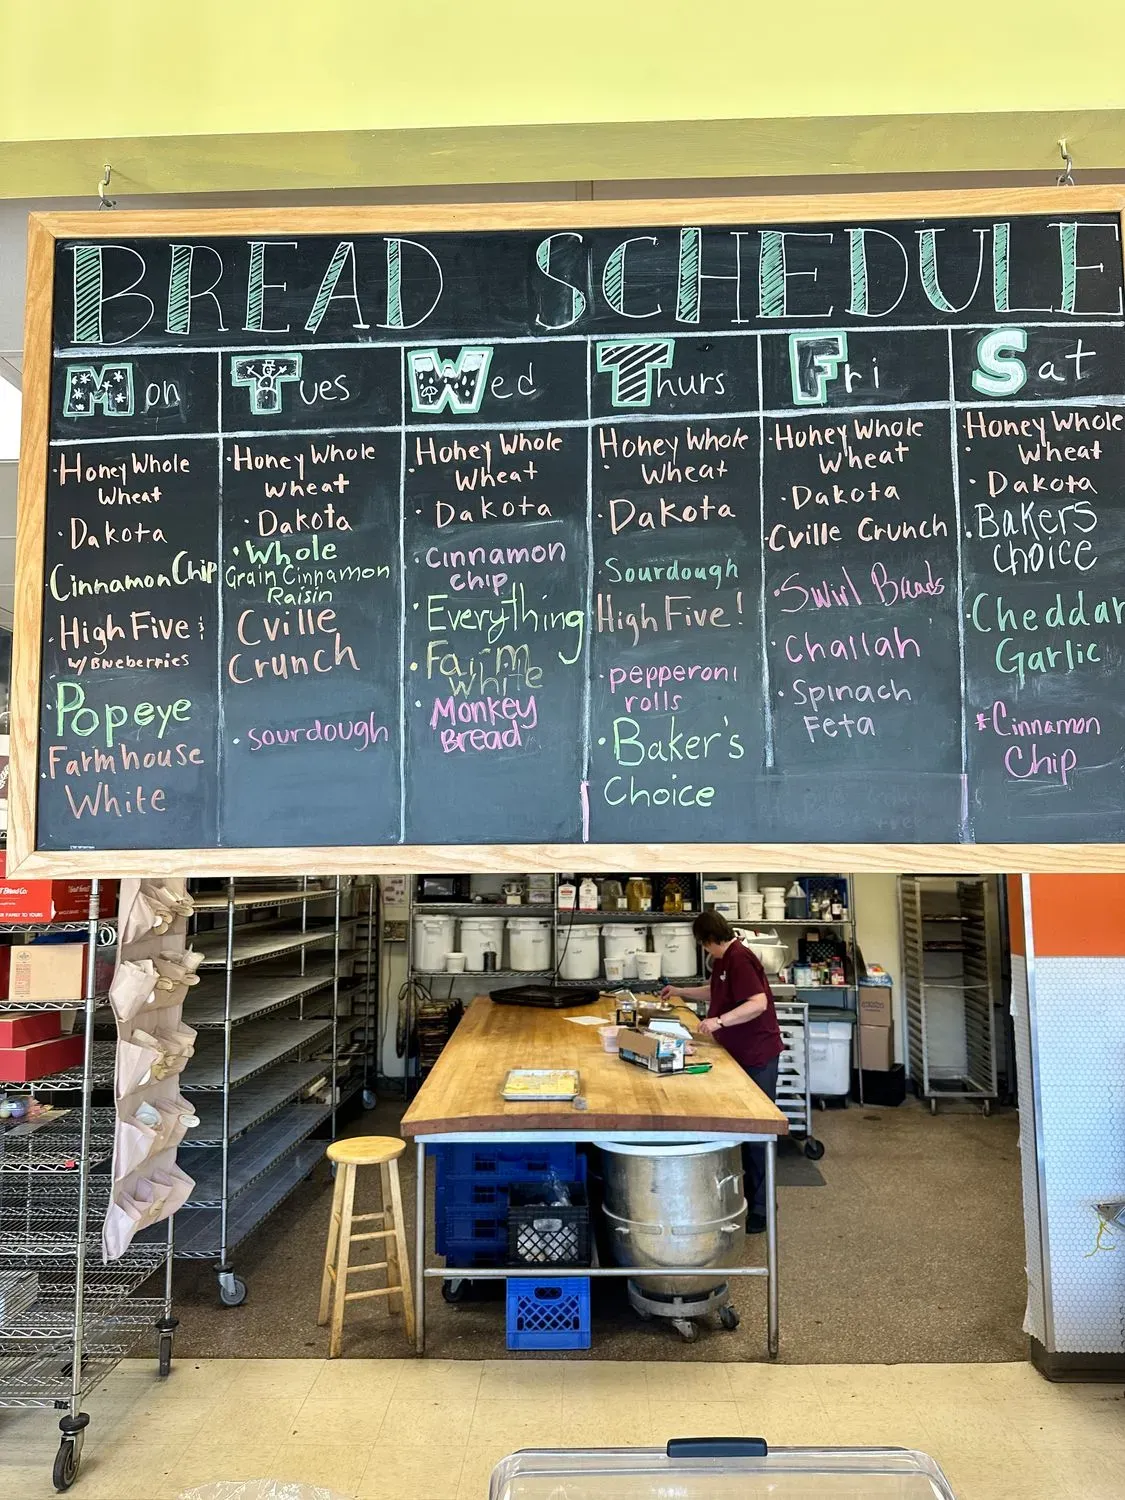 BREAD SCHEDULE
Mon
· Honey Whole
Wheat
· Dakota
· Cinnamon Chip
· High Five :
w/ Blueberries
· Popeye
· Farmhouse
White
Tues
· Honey Whole
Wheat
· Dakota
· Whole
Grain Cinnamon
Raisin
Cville
Crunch
· sourdough
Wed
· Honey Whole
Wheat
· Dakota
· cinnamon
chip
· Everything
· Farm
white
· Monkey
Bread
Thurs
· Honey Whole
Wheat
· Dakota
· Sourdough
High Five!
· pepperoni
rolls
· Baker's
Choice
Fri
· Honey Whole
Wheat
· Dakota
· Cville Crunch
· Swirl Breads
· Challah
· Spinach
Feta
Sat
· Honey Whole
Wheat
· Dakota
· Bakers
Choice
· Cheddar
Garlic
* Cinnamon
Chip